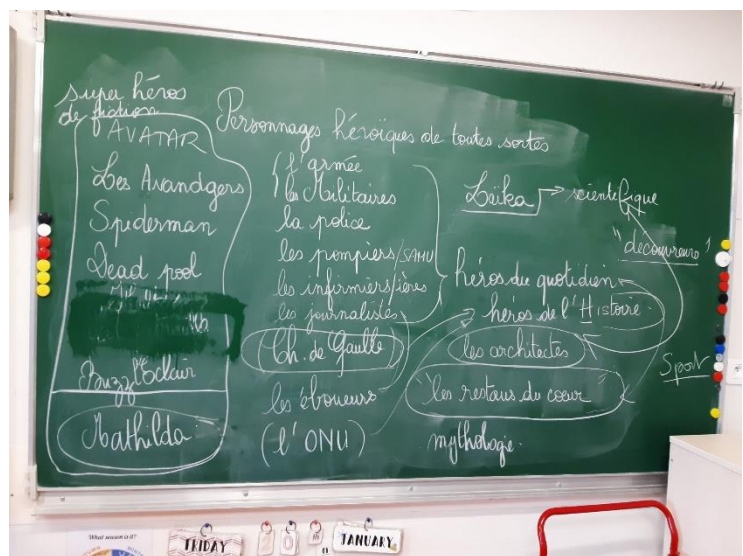 super héros
de fiction
AVATAR
Les Avandgers
Spiderman
Dead pool
Buzz l'Eclair
Mathilda
Personnages héroïques de toutes sortes
l'armée
les Militaires
la police
les pompiers/SAMU
les infirmiers/ières
les journalistes
Ch. de Gaulle
les éboueurs
(l'ONU)
Laïka
scientifique
"découvreurs"
héros du quotidien
héros de l'Histoire
les architectes
"les restaus du coeur"
mythologie
Sport
What season is it?
FRIDAY
JANUARY